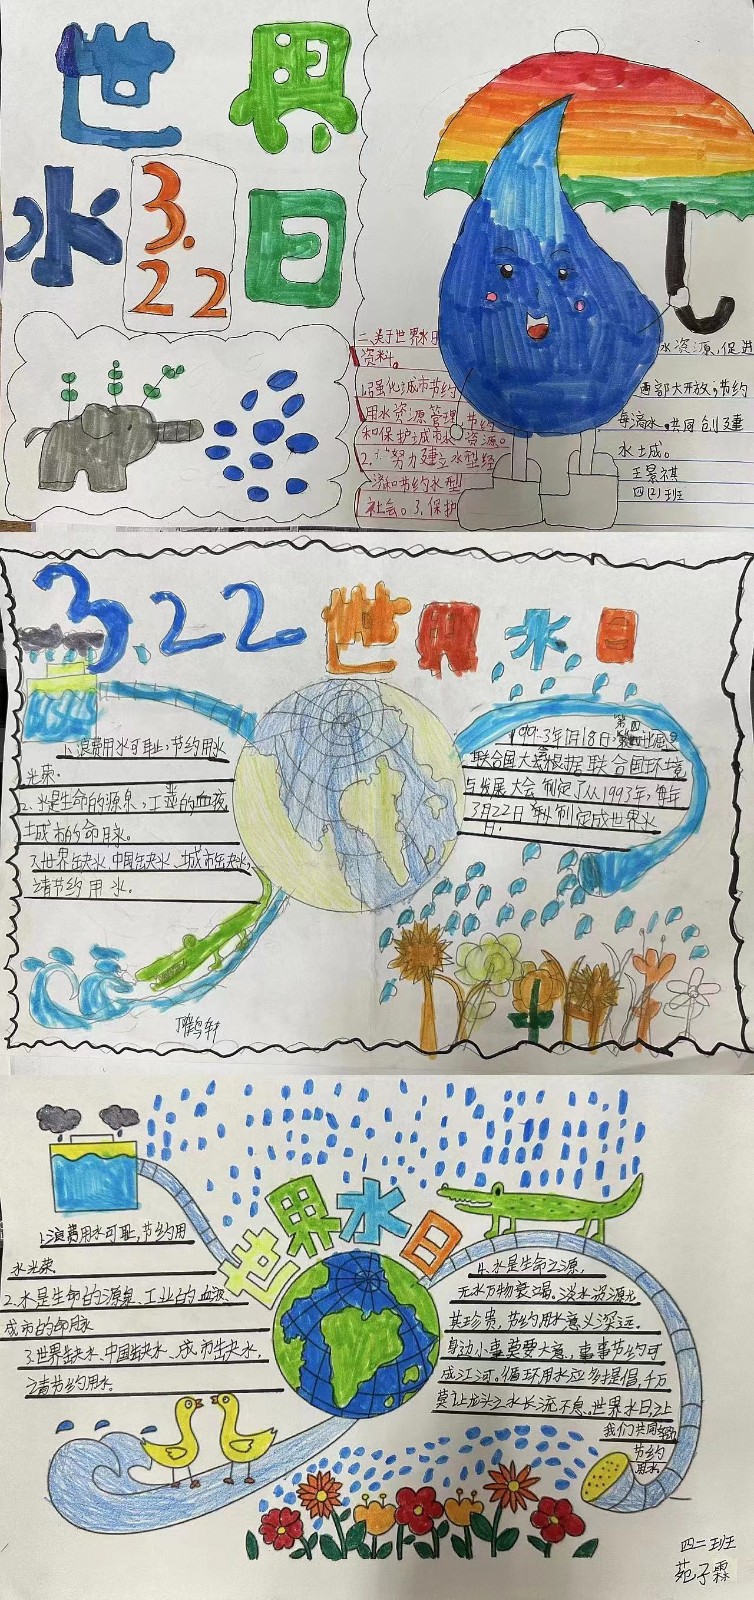 世 界
水 3.22 日
二、关于世界水日
资料。
1.强化城市节约
用水资源管理,节约
和保护城市水资源。
2.努力建立水型经
济和节约水型
社会。3.保护
水资源,促进
西部大开放,节约
每滴水,共同创建
水土成。
王景祺
四(2)班
3.22 世界水日
1.浪费用水可耻,节约用水
光荣。
2.水是生命的源泉,工业的血液
城市的命脉。
3.世界缺水、中国缺水、城市缺水,
请节约用水。
1993年1月18日,第四
联合国大会根据联合国环境
与发展大会制定了从1993年,每年
3月22日 制定成世界水
日.
鹤轩
世界水日
1.浪费用水可耻,节约用
水光荣.
2.水是生命的源泉、工业的血液、
城市的命脉
3.世界缺水、中国缺水、城市缺水,
请节约用水。
4.水是生命之源,
无水万物衰竭。淡水资源尤
其珍贵,节约用水意义深远。
身边小事莫要大意,事事节约可
成江河。循环用水应多提倡,千万
莫让龙头之水长流不息。世界水日,让
我们共同
节约
用水。
四二班
苑子霖